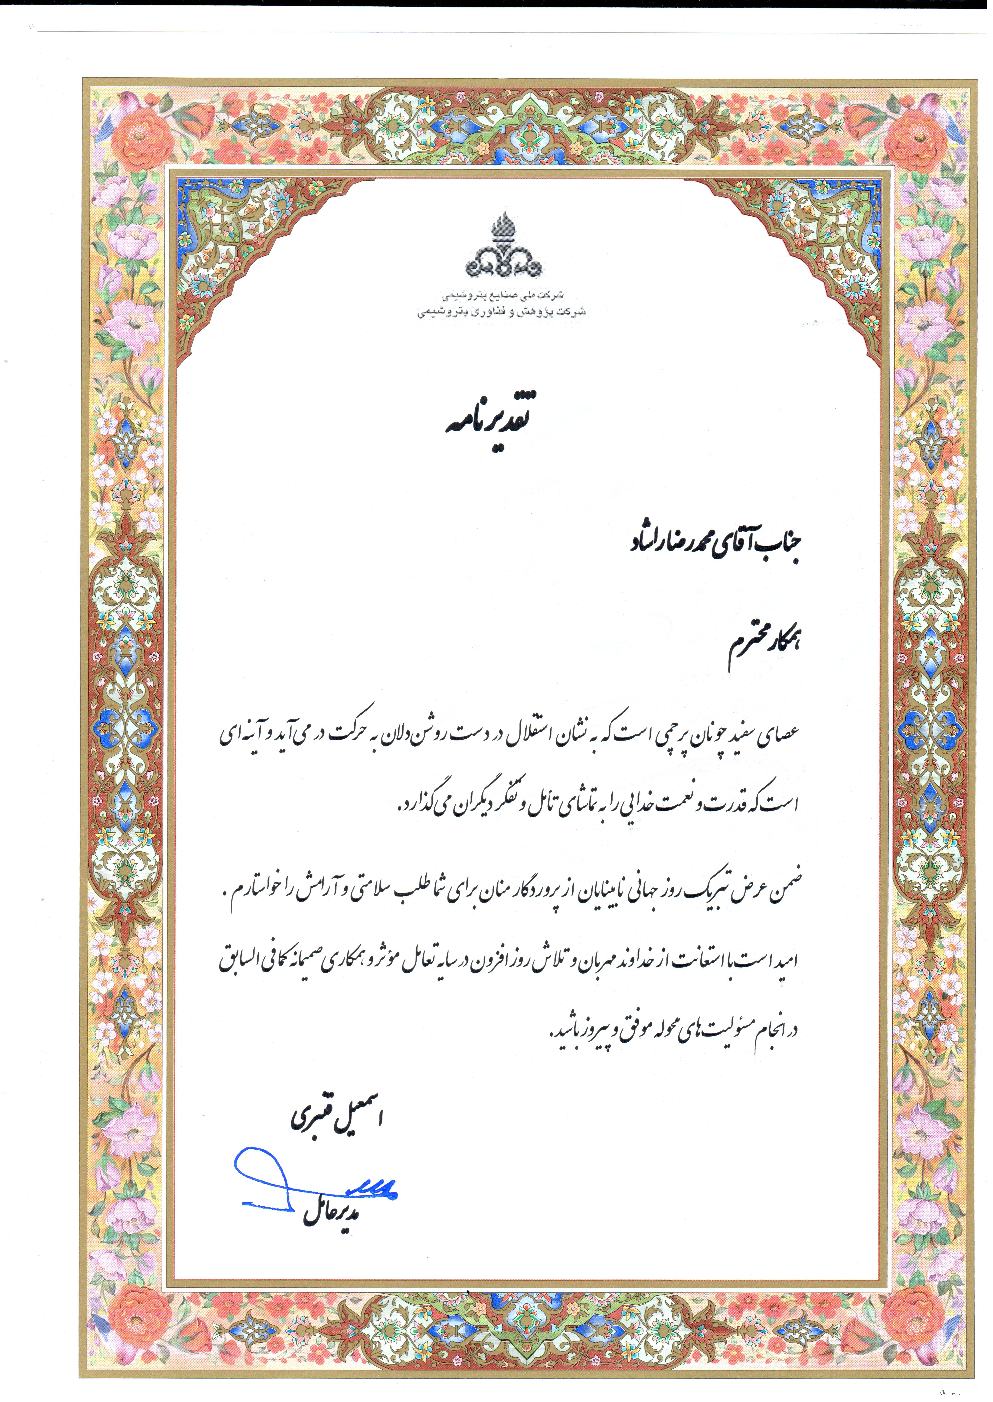 شرکت ملی صنایع پتروشیمی
شرکت پژوهش و فناوری پتروشیمی
تقدیرنامه
جناب آقای محمدرضا راشاد
همکار محترم
عصای سفید چونان پرچمی است که به نشان استقلال در دست روشن‌دلان به حرکت در می‌آید و آینه‌ای
است که قدرت و نعمت خدایی را به تماشای تأمل و تفکر دیگران می‌گذارد.
ضمن عرض تبریک روز جهانی نابینایان از پروردگار منان برای شما طلب سلامتی و آرامش را خواستارم .
امید است با استعانت از خداوند مهربان و تلاش روزافزون در سایه تعامل مؤثر و همکاری صمیمانه کمافی السابق
در انجام مسئولیت‌های محوله موفق و پیروز باشید.
اسمعیل قنبری
مدیرعامل